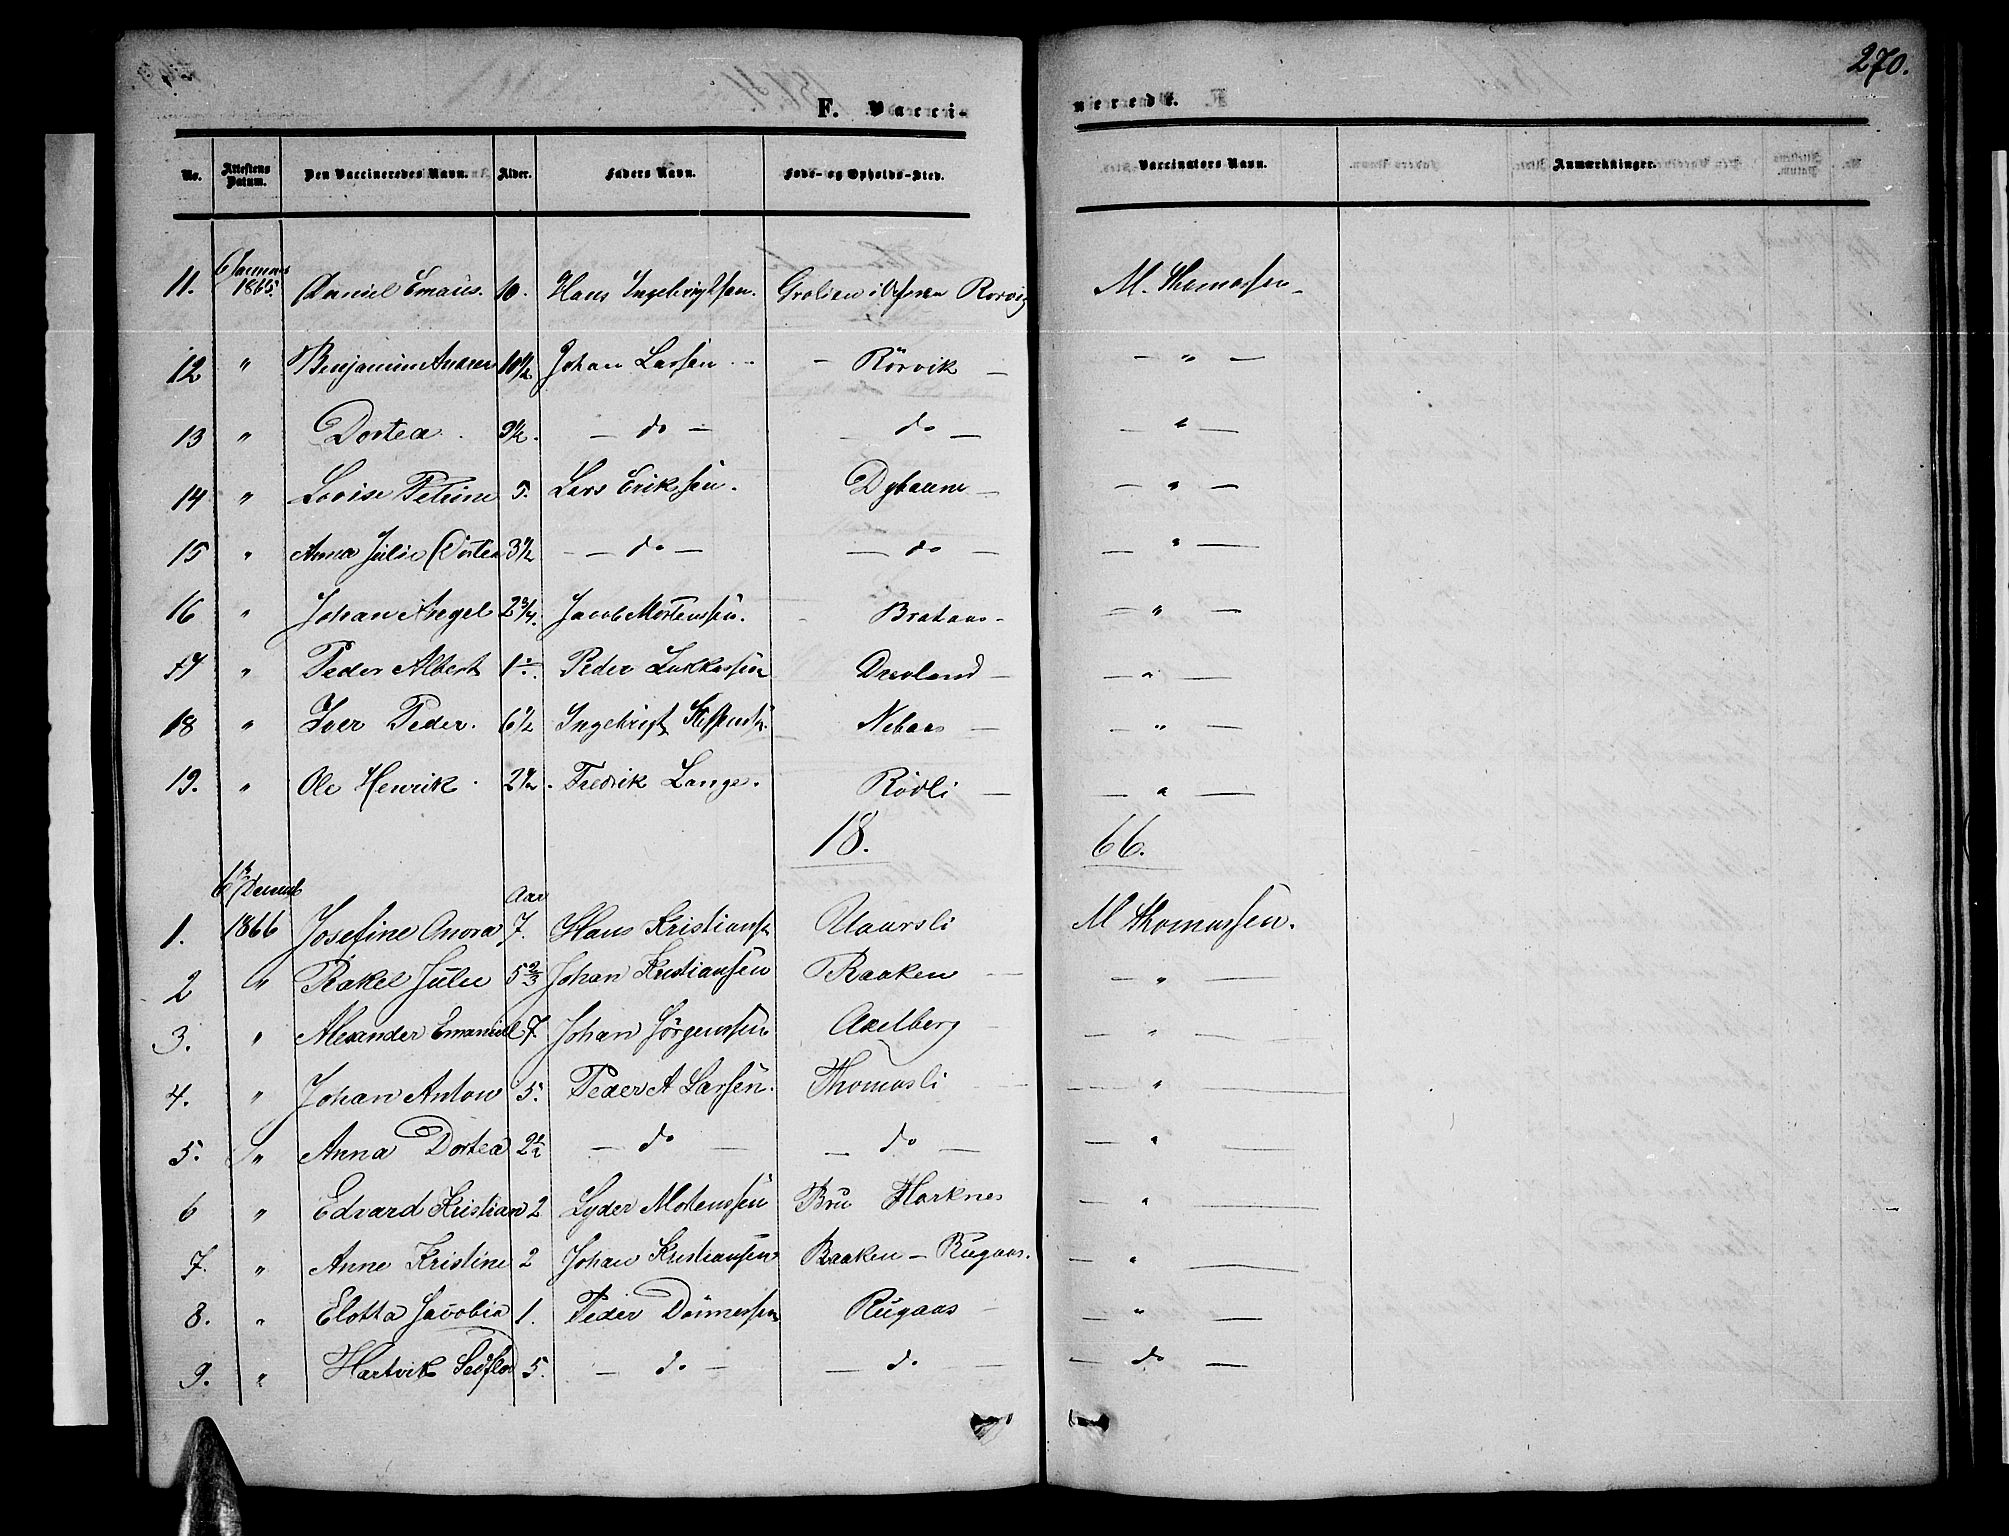 270.
F. Vacci-
nerede.
No. Attestens Datum. Den Vaccineredes Navn. Alder. Faders Navn. Føde- og Opholds-Sted. Vaccinators Navn. Anmærkninger.
11. 6 1865. Daniel Emaus. 10. Hans Ingebrigtsen. Rørvig M. Thomassen
12 " Benjamin Andreas 10½ Johan Larsen - Rörvik - - " -
13 " Dortea. 9½. - do - - do - - " -
14 " Lovise Petrine 5. Lars Erikssen. - - " -
15 " Anna Julie Dortea 3½ - do - - do - - " -
16 " Johan Angel 2¾. Jacob Mortenssen. Brataas - - " -
17 " Peder Albert 1 Peder Lukkassen Drevland - - " -
18 " Iver Peder. 6½ Ingebrigt Nebaas - - " -
19. " Ole Henrik 2½. Fredrik Lange. Rödli - - " -
18. 66.
Aar
1. 6 Decemb 1866 Josefine Anora 7. Hans Kristianss. M Thomassen.
2 " Rakel Julie 5⅔ Johan Kristianssen Raaken - - " -
3. " Alexander Emanuel 7. Johan Jörgenssen Axelberg - - " -
4. " Johan Anton 5. Peder A Larsen. Thomasli - - " -
5. " Anna Dortea 2½ - do - - do - - " -
6 " Edvard Kristian 2 Lyder Motenssen Bru Horknes - " -
7. " Anne Kristine 2 Johan Kristianssen Raaken - Rugaas. - " -
8. " Elotta Jacobia 1. Peder Rugaas - - " -
9. " Hartvik 5. - do - - do - - do -